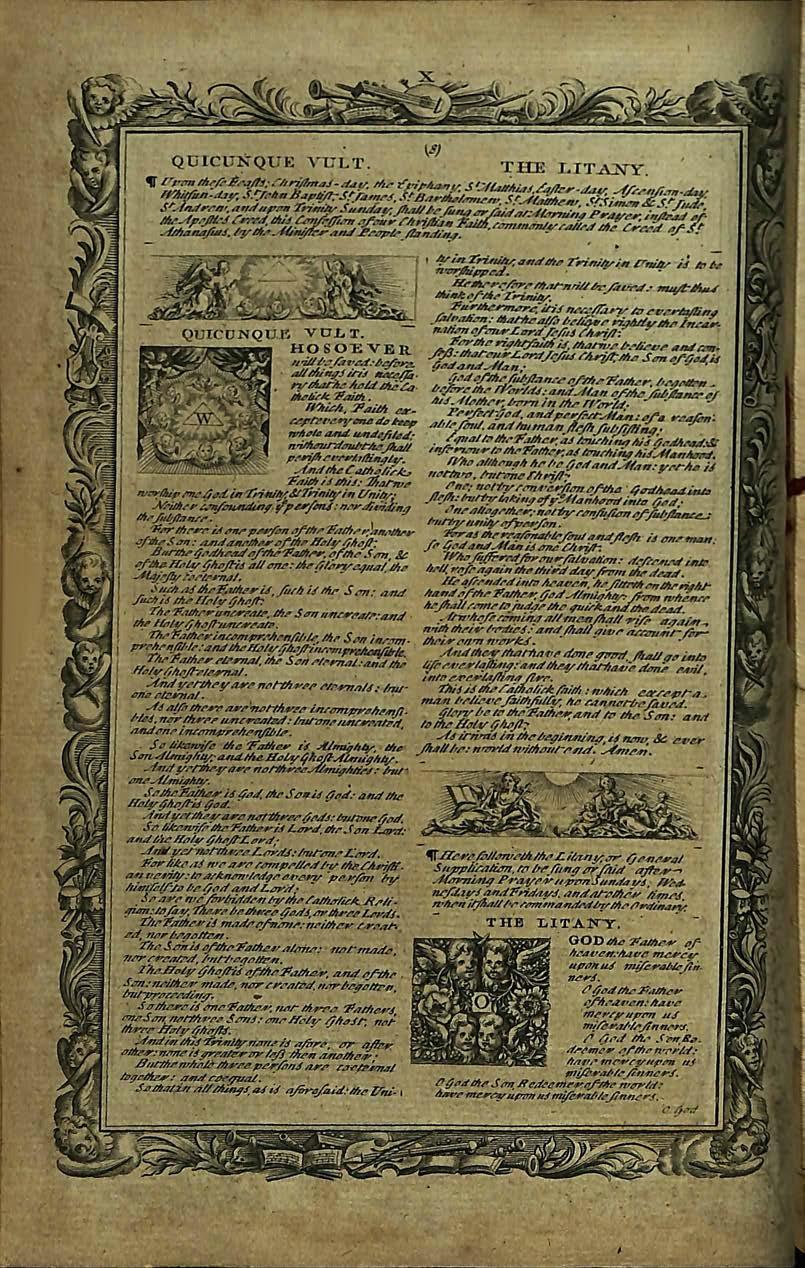 X
(8)
QUICUNQUE VULT.
THE LITANY.
¶ Upon these Feasts; Christmas-day, the Epiphany, St. Matthias, Easter-day, Ascension-day,
Whitsun-day, St. John Baptist, St. James, St. Bartholomew, St. Matthew, St. Simon & St. Jude,
St. Andrew, and upon Trinity Sunday, shall be sung or said at Morning Prayer, instead of
the Apostles Creed, this Confession of our Christian Faith, commonly called the Creed of St.
Athanasius, by the Minister and People standing.
QUICUNQUE VULT.
W
HOSOEVER
will be saved: before
all things it is necessa-
ry that he hold the Ca-
tholick Faith.
Which, Faith ex-
cept every one do keep
whole and undefiled:
without doubt he shall
perish everlastingly.
And the Catholick
Faith is this: That we
worship one God in Trinity, & Trinity in Unity;
Neither confounding ye persons: nor dividing
the substance.
For there is one person of the Father, another
of the Son: and another of the Holy Ghost.
But the Godhead of the Father, of the Son, &
of the Holy Ghost is all one: the Glory equal, the
Majesty coeternal.
Such as the Father is, such is the Son: and
such is the Holy Ghost:
The Father uncreate, the Son uncreate: and
the Holy Ghost uncreate.
The Father incomprehensible, the Son incom-
prehensible: and the Holy Ghost incomprehensible.
The Father eternal, the Son eternal: and the
Holy Ghost eternal.
And yet they are not three eternals: but
one eternal.
As also there are not three incomprehensi-
bles, nor three uncreated: but one uncreated,
and one incomprehensible.
So likewise the Father is Almighty, the
Son Almighty: and the Holy Ghost Almighty.
And yet they are not three Almighties: but
one Almighty.
So the Father is God, the Son is God: and the
Holy Ghost is God.
And yet they are not three Gods: but one God.
So likewise the Father is Lord, the Son Lord:
and the Holy Ghost Lord;
And yet not three Lords: but one Lord.
For like as we are compelled by the Christi-
an verity: to acknowledge every person by
himself to be God and Lord;
So are we forbidden by the Catholick Reli-
gion: to say, There be three Gods, or three Lords.
The Father is made of none: neither creat-
ed, nor begotten.
The Son is of the Father alone: not made,
nor created, but begotten.
The Holy Ghost is of the Father, and of the
Son: neither made, nor created, nor begotten,
but proceeding.
So there is one Father, not three Fathers,
one Son not three Sons: one Holy Ghost, not
three Holy Ghosts.
And in this Trinity none is afore, or after
other: none is greater or less then another;
But the whole three persons are coeternal
together: and coequal.
So that in all things, as is aforesaid: the Uni-
ty in Trinity, and the Trinity in Unity is to be
worshipped.
He therefore that will be saved: must thus
think of the Trinity.
Furthermore, it is necessary to everlasting
salvation: that he also believe rightly the Incar-
nation of our Lord Jesus Christ.
For the right faith is, that we believe and con-
fess: that our Lord Jesus Christ, the Son of God, is
God and Man;
God of the substance of the Father, begotten
before the Worlds: and Man of the substance of
his Mother, born in the World;
Perfect God, and perfect Man: of a reason-
able soul, and human flesh subsisting;
Equal to the Father, as touching his Godhead: &
inferiour to the Father, as touching his Manhood.
Who although he be God and Man: yet he is
not two, but one Christ;
One; not by conversion of the Godhead into
flesh: but by taking of ye Manhood into God;
One altogether; not by confusion of substance:
but by unity of person.
For as the reasonable soul and flesh is one man:
so God and Man is one Christ.
Who suffered for our salvation: descened into
hell, rose again the third day from the dead.
He ascended into heaven, he sitteth on the right
hand of the Father, God Almighty: from whence
he shall come to judge the quick and the dead.
At whose coming all men shall rise again
with their bodies: and shall give account for
their own works.
And they that have done good, shall go into
life everlasting: and they that have done evil,
into everlasting fire.
This is the Catholick faith: which except a
man believe faithfully, he cannot be saved.
Glory be to the Father, and to the Son: and
to the Holy Ghost;
As it was in the beginning, is now, & ever
shall be: world without end. Amen.
¶ Here followeth the Litany, or General
Supplication, to be sung or said after
Morning Prayer upon Sundays, Wed-
nesdays and Fridays, and at other times,
when it shall be commanded by the Ordinary.
THE LITANY.
O
GOD the Father of
heaven: have mercy
upon us miserable sin-
ners.
O God the Father
of heaven: have
mercy upon us
miserable sinners.
O God the Son, Re-
deemer of the world:
have mercy upon us
miserable sinners.
O God the Son, Redeemer of the world:
have mercy upon us miserable sinners.
O God